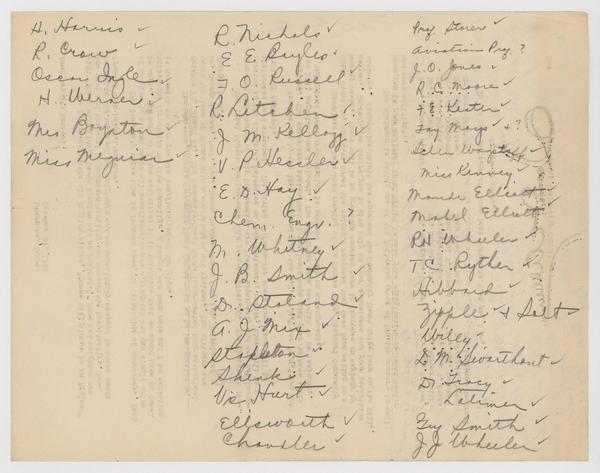 H. Harris ✓
R. Crow ✓
Oscar Ingle ✓
H. Werner ✓
Mrs. Boynton ✓
Miss Meguiar ✓
R. Nichols ✓
E E Bayles ✓
F. O. Russell
R. Litchen ✓
J M Kellogg ✓
V P Hessler ✓
E. D. Hay ✓
Chem. Engr. ?
M. Whitney ✓
J. B. Smith ✓
D. Stoland ✓
A. J. Mix ✓
Stapleton ✓
Shenk ✓
Vic Hurt ✓
Ellsworth ✓
Chandler ✓
Prof. Storer ✓
Aviation Prof ?
J. O. Jones ✓
R. C. Moore ✓
F. E. Kester ✓
Fay Moys ✓ + ?
Wagstaff ✓
Miss Kenney ✓
Maude Elliott ✓
Mabel Elliott ✓
R H Wheeler ✓
T. C. Ryther ✓
Hibbard ✓
Zipple + Salt
Wiley ✓
D. M. Swarthout ✓
Dr Tracy ✓
Latimer ✓
Guy Smith ✓
J J Wheeler ✓